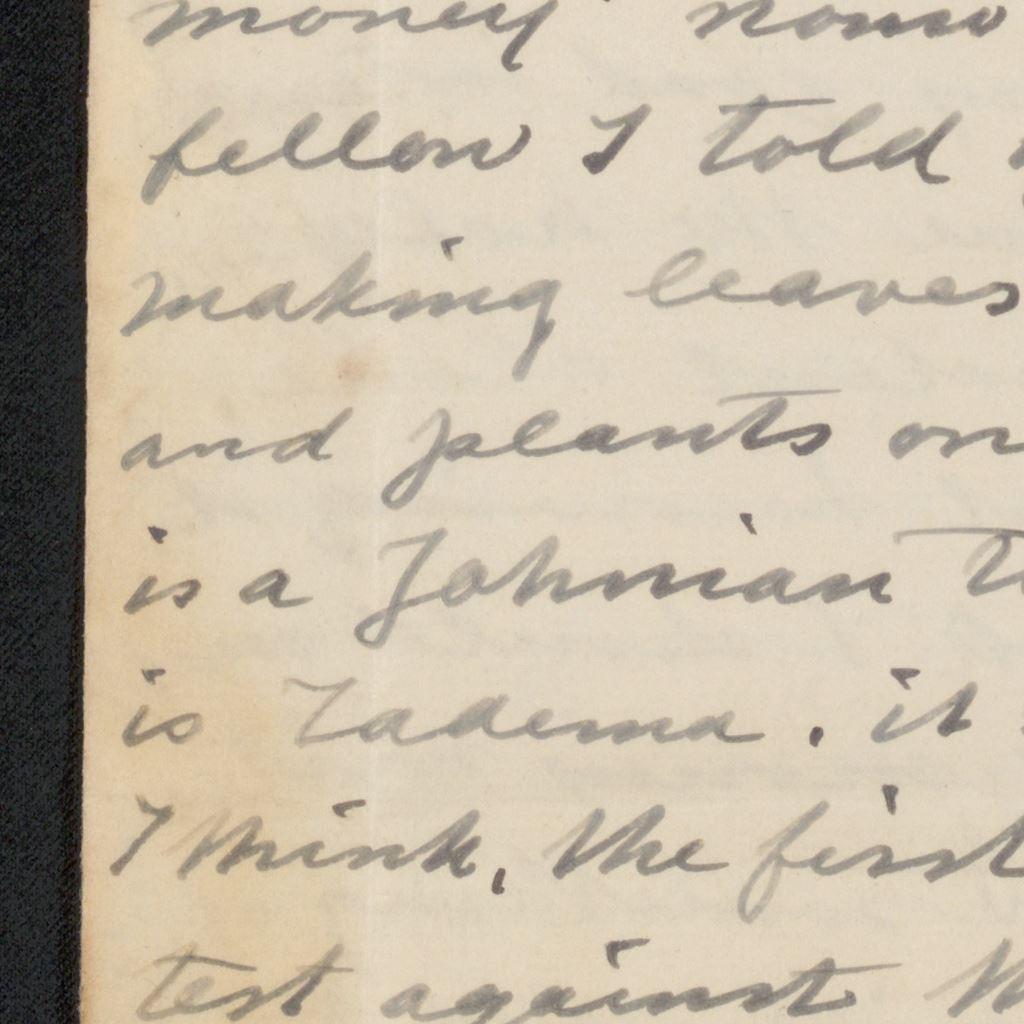 money
fellow I told
making leaves
and plants on
is a Johnian
is Tadema. it
I think, the first
test against